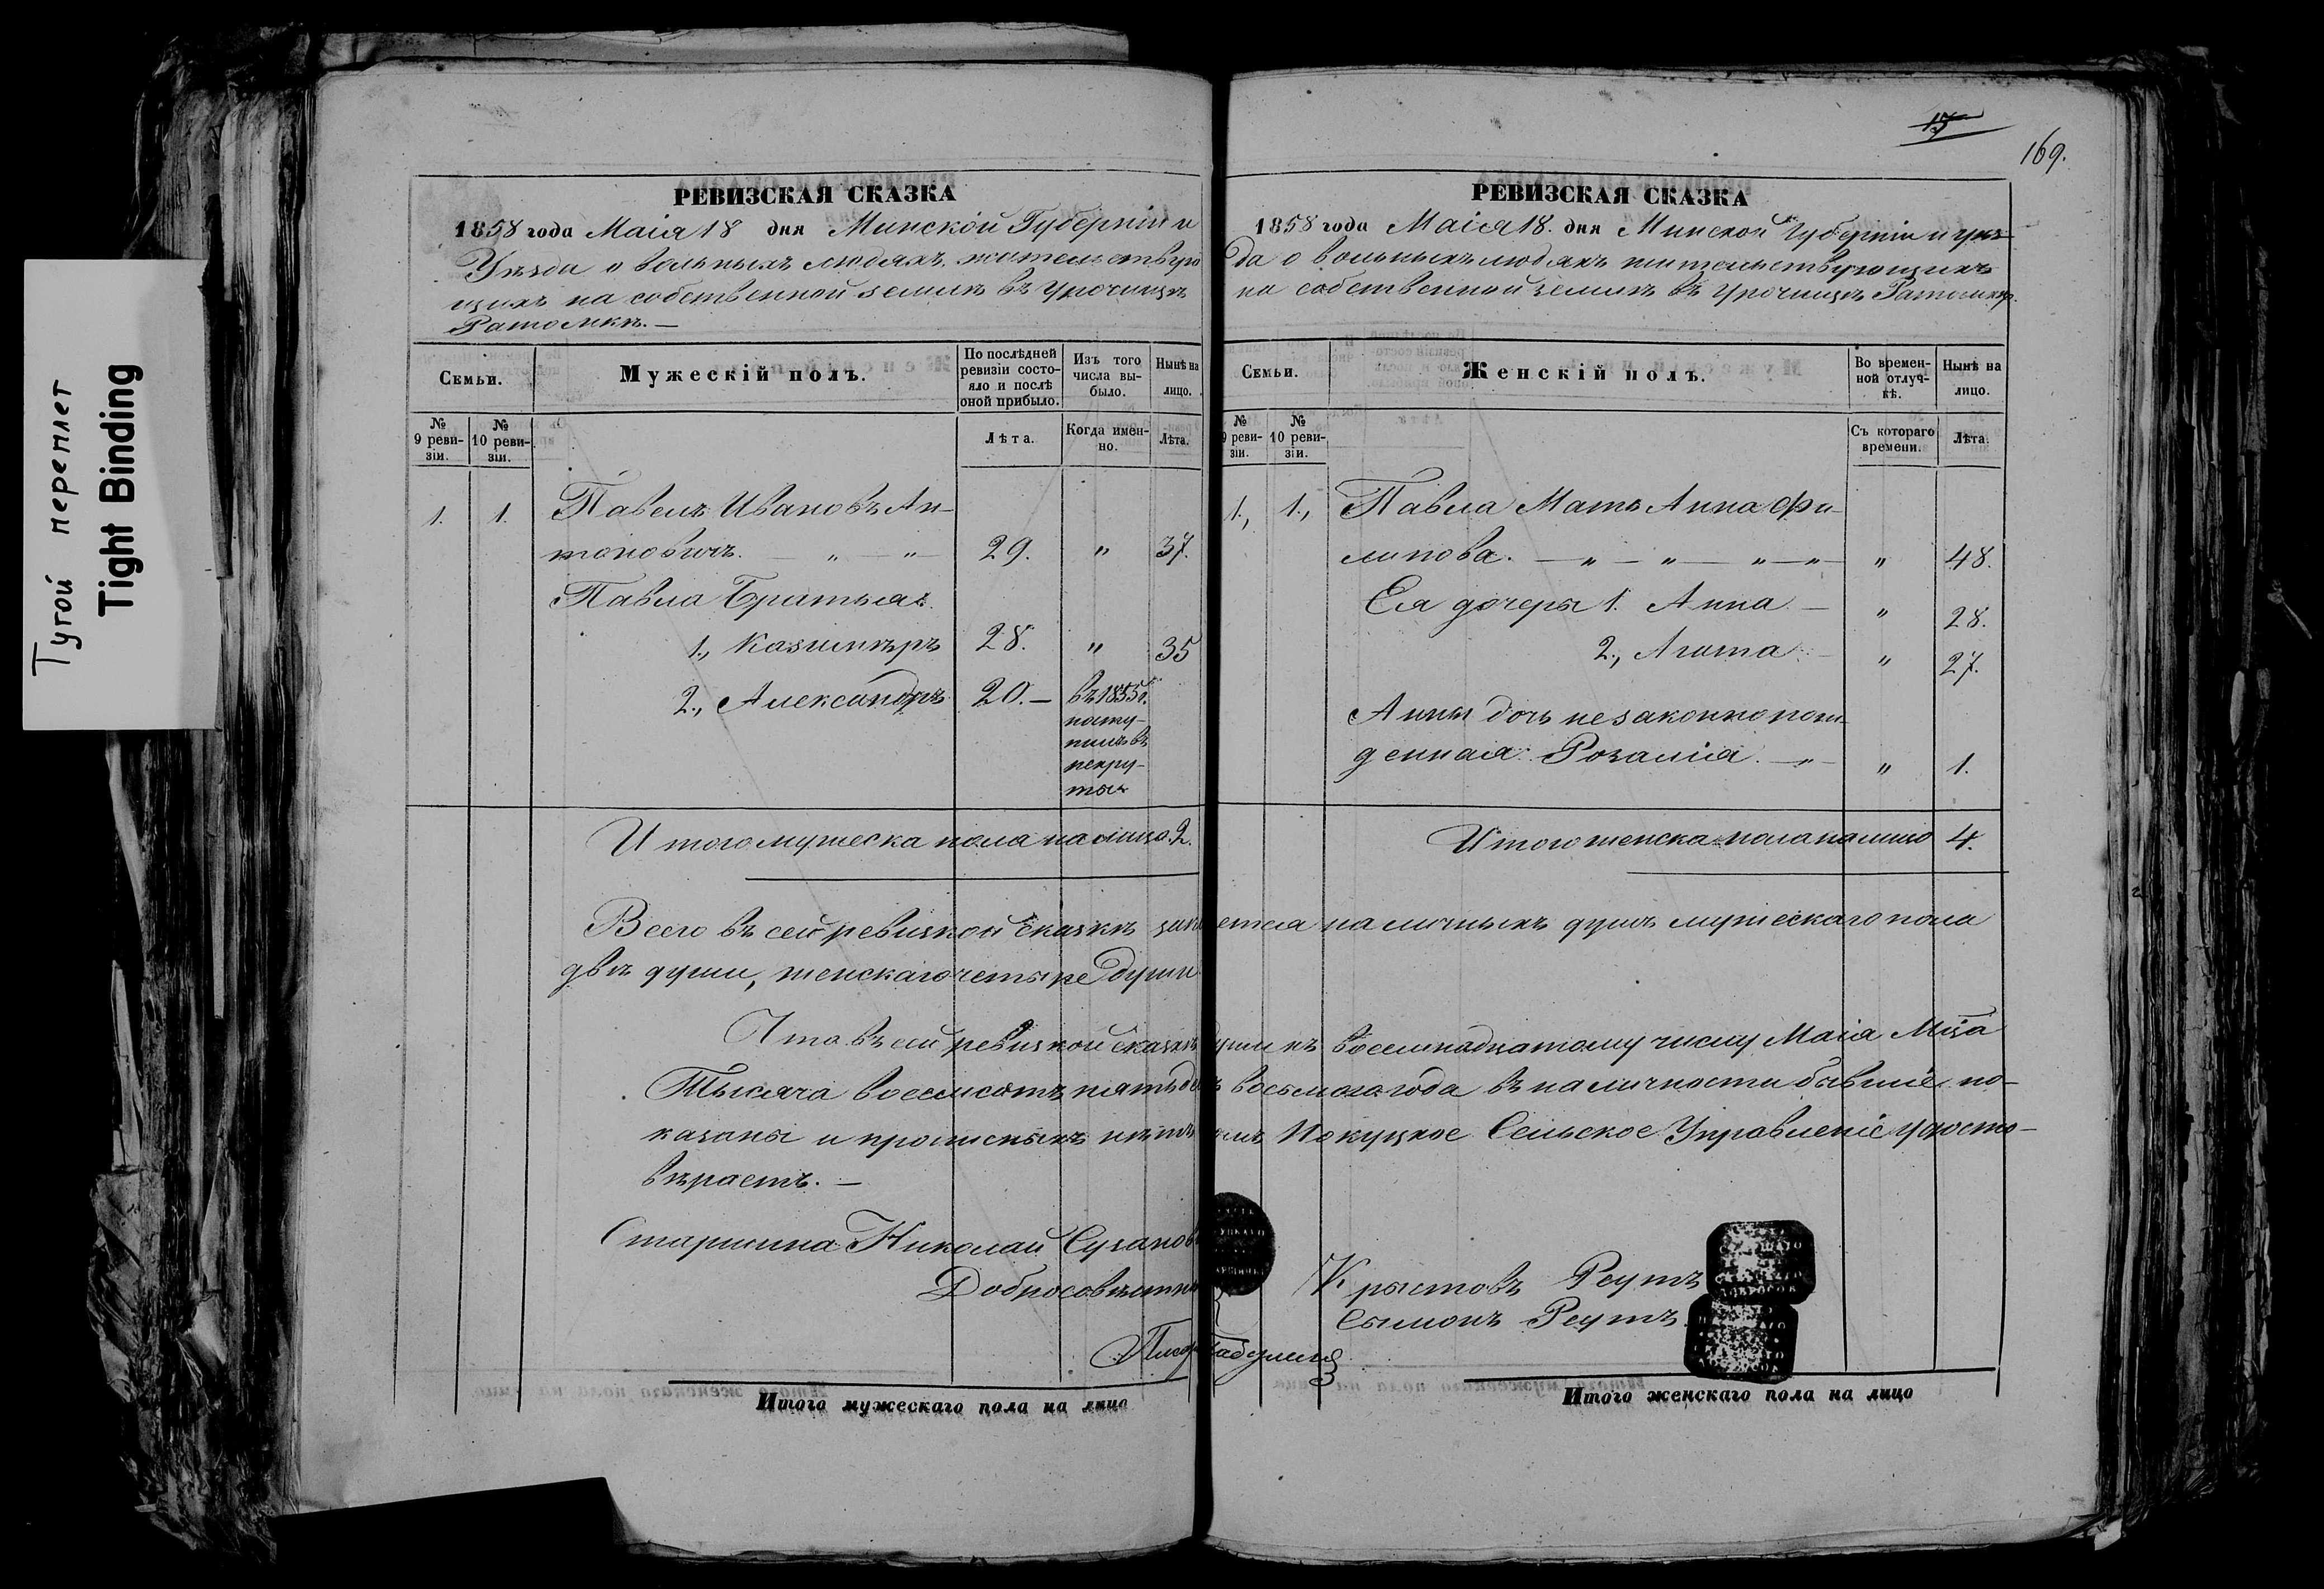 Тугой переплет
Tight Binding
РЕВИЗСКАЯ СКАЗКА
1858 года Маія 18 дня Минской Губерніи и
Уѣзда о вольныхъ людяхъ жительствую
щихъ на собственной землѣ въ Урочищѣ
Ратомкѣ. —
Семьи.
Мужескій полъ.
По послѣдней ревизіи состояло и послѣ оной прибыло.
Изъ того числа выбыло.
Нынѣ на лицо.
№ 9 ревизіи.
№ 10 ревизіи.
Лѣта.
Когда именно.
Лѣта.
1. 1. Павелъ Ивановъ Ан-
тоновичъ. — „ — „ — 29. „ 37.
Павла Братья
1., Казимѣръ 28. „ 35
2., Александръ 20. — въ 1855 г.
посту-
пилъ въ
рекру-
ты
Итого мужеска пола на лицо 2.
Всего въ сей ревизкой сказкѣ
двѣ души, женскаго четыре души
Что въ сей ревизкой сказкѣ
Тысяча восемсотъ пятьде
казаны и прописныхъ нѣтъ
вѣряетъ. —
Старшина Николай
Добросовѣстн
Итого мужескаго пола на лицо
15
169.
РЕВИЗСКАЯ СКАЗКА
1858 года Маія 18. дня Минской Губерніи и уѣз
да о вольныхъ людяхъ жительствующихъ
на собственной землѣ въ Урочищѣ Ратомкѣ.
Семьи.
Женскій полъ.
Во временной отлучкѣ.
Нынѣ на лицо.
№ 9 ревизіи.
№ 10 ревизіи.
Съ котораго времени.
Лѣта.
1., 1., Павла Мать Анна Фи-
липова. — „ — „ — „ — „ — „ 48.
Ея дочеры 1. Анна — „ 28.
2., Агата — „ 27.
Анны дочь незаконнорож-
денная Розалія. — „ — „ 1.
Итого женска пола на лицо 4.
ется наличныхъ душъ мужескаго пола
души къ восемнадцатому числу Маія Мца
восьмого года въ наличности бывшіе по-
Сельское Управленіе удосто-
Крыстовъ Реутъ
Сымонъ Реутъ
Итого женскаго пола на лицо